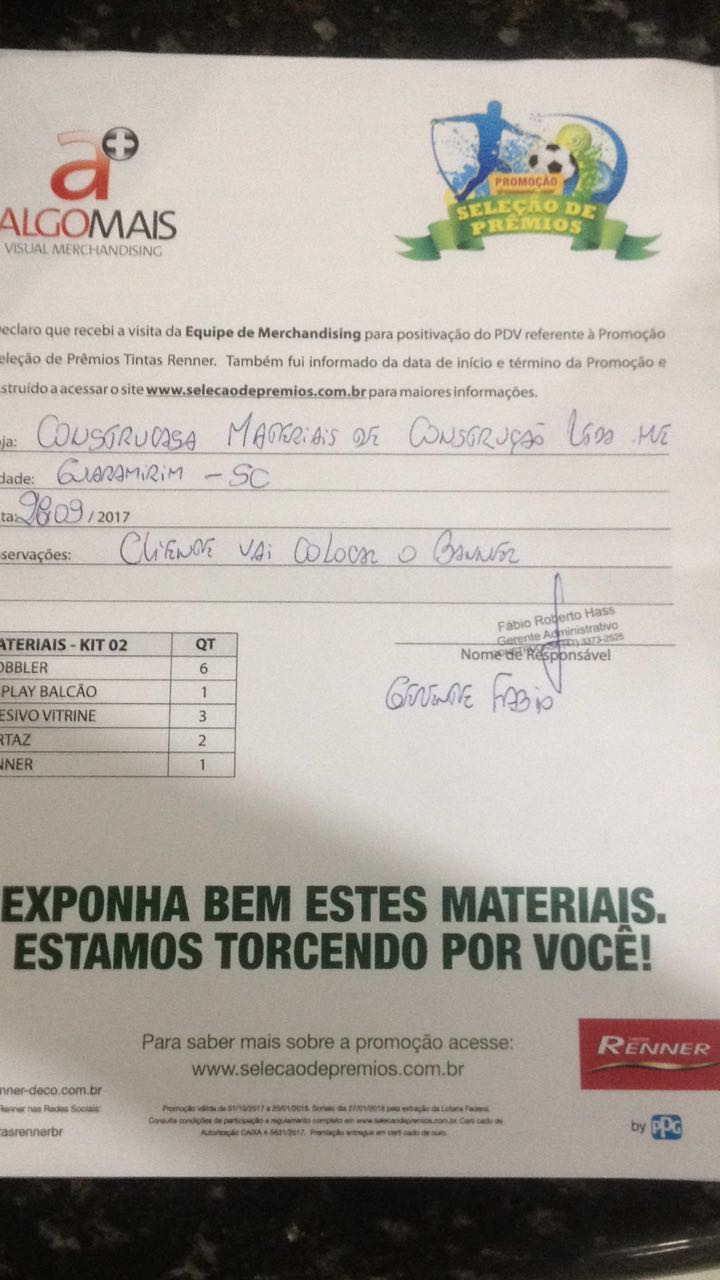 a+
ALGOMAIS
VISUAL MERCHANDISING
PROMOÇÃO
SELEÇÃO DE
PRÊMIOS
eclaro que recebi a visita da Equipe de Merchandising para positivação do PDV referente à Promoção
eleção de Prêmios Tintas Renner. Também fui informado da data de início e término da Promoção e
struído a acessar o site www.selecaodepremios.com.br para maiores informações.
ja: CONSTRUCASA MATERIAIS DE CONSTRUÇÃO LTDA ME
dade: GUARAMIRIM - SC
ta: 28 09 / 2017
servações: CLIENTE VAI COLOCAR O BANNER
ATERIAIS - KIT 02 QT
OBBLER 6
PLAY BALCÃO 1
ESIVO VITRINE 3
RTAZ 2
NNER 1
Fábio Roberto Hass
Gerente Administrativo
(47) 3373-2525
Nome de Responsável
GERENTE FABIO
EXPONHA BEM ESTES MATERIAIS.
ESTAMOS TORCENDO POR VOCÊ!
Para saber mais sobre a promoção acesse:
www.selecaodepremios.com.br
RENNER
nner-deco.com.br
Renner nas Redes Sociais:
asrennerbr
Promoção válida de 01/10/2017 a 20/01/2018. Sorteio dia 27/01/2018 pela extração da Loteria Federal.
Consulte condições de participação e regulamento completo em www.selecaodepremios.com.br. Certificado de
Autorização CAIXA 4-5631/2017. Premiação entregue em certificado de ouro.
by PPG